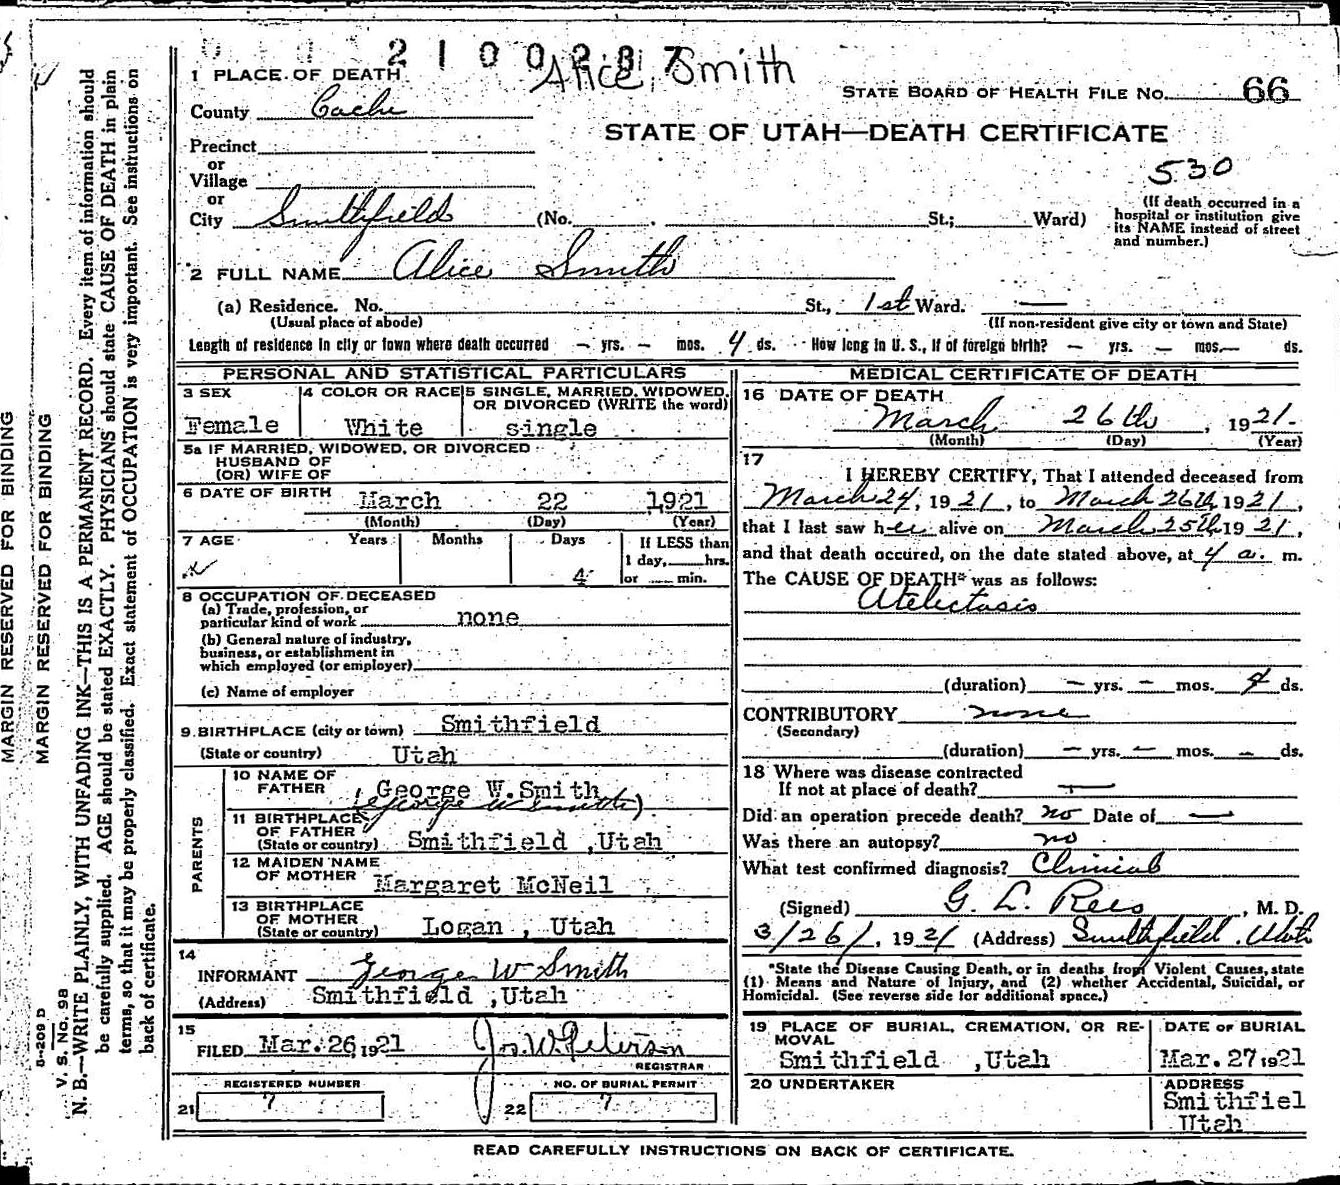 2100287
Alice Smith
1 PLACE OF DEATH
STATE BOARD OF HEALTH FILE No. 66
County Cache
STATE OF UTAH—DEATH CERTIFICATE
Precinct
or
Village
530
or
City Smithfield (No. St.; Ward)
(If death occurred in a
hospital or institution give
its NAME instead of street
and number.)
2 FULL NAME Alice Smith
(a) Residence. No. St., 1st Ward. —
(Usual place of abode)
(If non-resident give city or town and State)
Length of residence in city or town where death occurred – yrs. – mos. 4 ds. How long in U. S., if of foreign birth? – yrs. – mos. – ds.
PERSONAL AND STATISTICAL PARTICULARS
3 SEX
Female
4 COLOR OR RACE
White
5 SINGLE, MARRIED, WIDOWED,
OR DIVORCED (WRITE the word)
single
5a IF MARRIED, WIDOWED, OR DIVORCED
HUSBAND OF
(OR) WIFE OF
6 DATE OF BIRTH March 22 1921
(Month) (Day) (Year)
7 AGE Years Months Days
4
If LESS than
1 day, hrs.
or min.
8 OCCUPATION OF DECEASED
(a) Trade, profession, or
particular kind of work none
(b) General nature of industry,
business, or establishment in
which employed (or employer)
(c) Name of employer
9 BIRTHPLACE (city or town) Smithfield
(State or country) Utah
PARENTS
10 NAME OF
FATHER George W.Smith
(George W Smith)
11 BIRTHPLACE
OF FATHER
(State or country) Smithfield ,Utah
12 MAIDEN NAME
OF MOTHER Margaret McNeil
13 BIRTHPLACE
OF MOTHER
(State or country) Logan , Utah
14
INFORMANT George W Smith
(Address) Smithfield ,Utah
15
FILED Mar. 26 1921 Jos. W. Peterson
REGISTRAR
REGISTERED NUMBER
21 7
NO. OF BURIAL PERMIT
22 7
MEDICAL CERTIFICATE OF DEATH
16 DATE OF DEATH
March 26th, 1921.
(Month) (Day) (Year)
17
I HEREBY CERTIFY, That I attended deceased from
March 24, 1921, to March 26th, 1921,
that I last saw her alive on March 25th, 1921,
and that death occured, on the date stated above, at 4 a. m.
The CAUSE OF DEATH* was as follows:
Atelectasis
(duration) – yrs. – mos. 4 ds.
CONTRIBUTORY none
(Secondary)
(duration) – yrs. – mos. – ds.
18 Where was disease contracted
If not at place of death? —
Did an operation precede death? no Date of —
Was there an autopsy? no
What test confirmed diagnosis? Clinical
(Signed) G. L. Rees, M. D.
3/26/, 1921 (Address) Smithfield, Utah
*State the Disease Causing Death, or in deaths from Violent Causes, state
(1) Means and Nature of Injury, and (2) whether Accidental, Suicidal, or
Homicidal. (See reverse side for additional space.)
19 PLACE OF BURIAL, CREMATION, OR RE-
MOVAL
Smithfield ,Utah
DATE OF BURIAL
Mar. 27 1921
20 UNDERTAKER
ADDRESS
Smithfiel
Utah
READ CAREFULLY INSTRUCTIONS ON BACK OF CERTIFICATE.
MARGIN RESERVED FOR BINDING
MARGIN RESERVED FOR BINDING
S-209 D
V. S. No. 98
N. B.—WRITE PLAINLY, WITH UNFADING INK—THIS IS A PERMANENT RECORD. Every item of information should
be carefully supplied. AGE should be stated EXACTLY. PHYSICIANS should state CAUSE OF DEATH in plain
terms, so that it may be properly classified. Exact statement of OCCUPATION is very important. See instructions on
back of certificate.